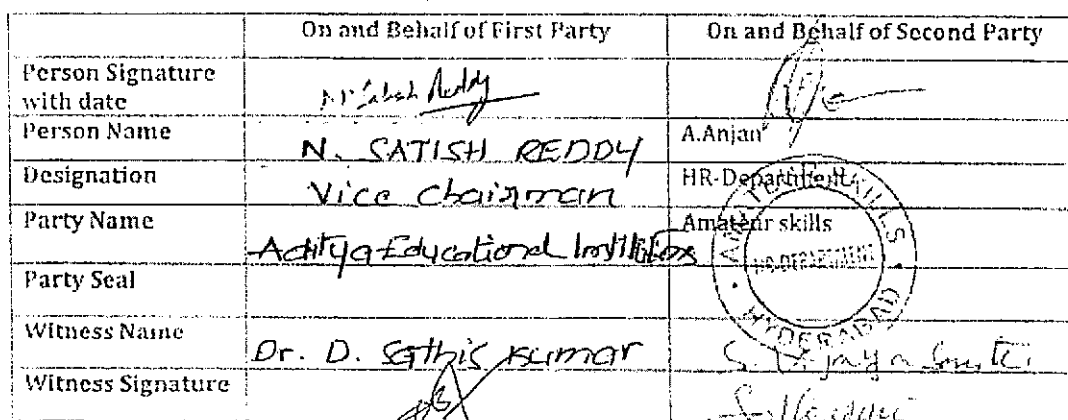 On and Behalf of First Party On and Behalf of Second Party
Person Signature
with date Satish Reddy
Person Name N. SATISH REDDY A.Anjan
Designation Vice Chairman HR-Department
Party Name Aditya Educational Institutions Amateur skills
Party Seal
AMATEUR SKILLS
HR DEPARTMENT
HYDERABAD
Witness Name Dr. D. Sathis Kumar S.
Witness Signature